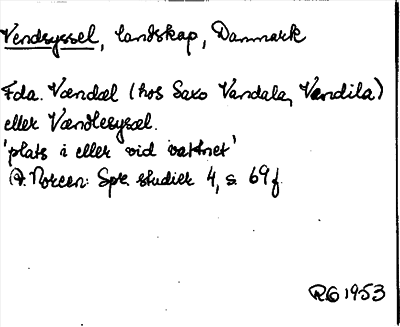 Vendsyssel, landskap, Danmark
Fda. Vændæl (hos Saxo Vandala, Vændila)
eller Vændlesysæl.
'plats i eller vid vattnet'
A. Noreen: Spr. studier 4, s. 69 f.
RO 1953